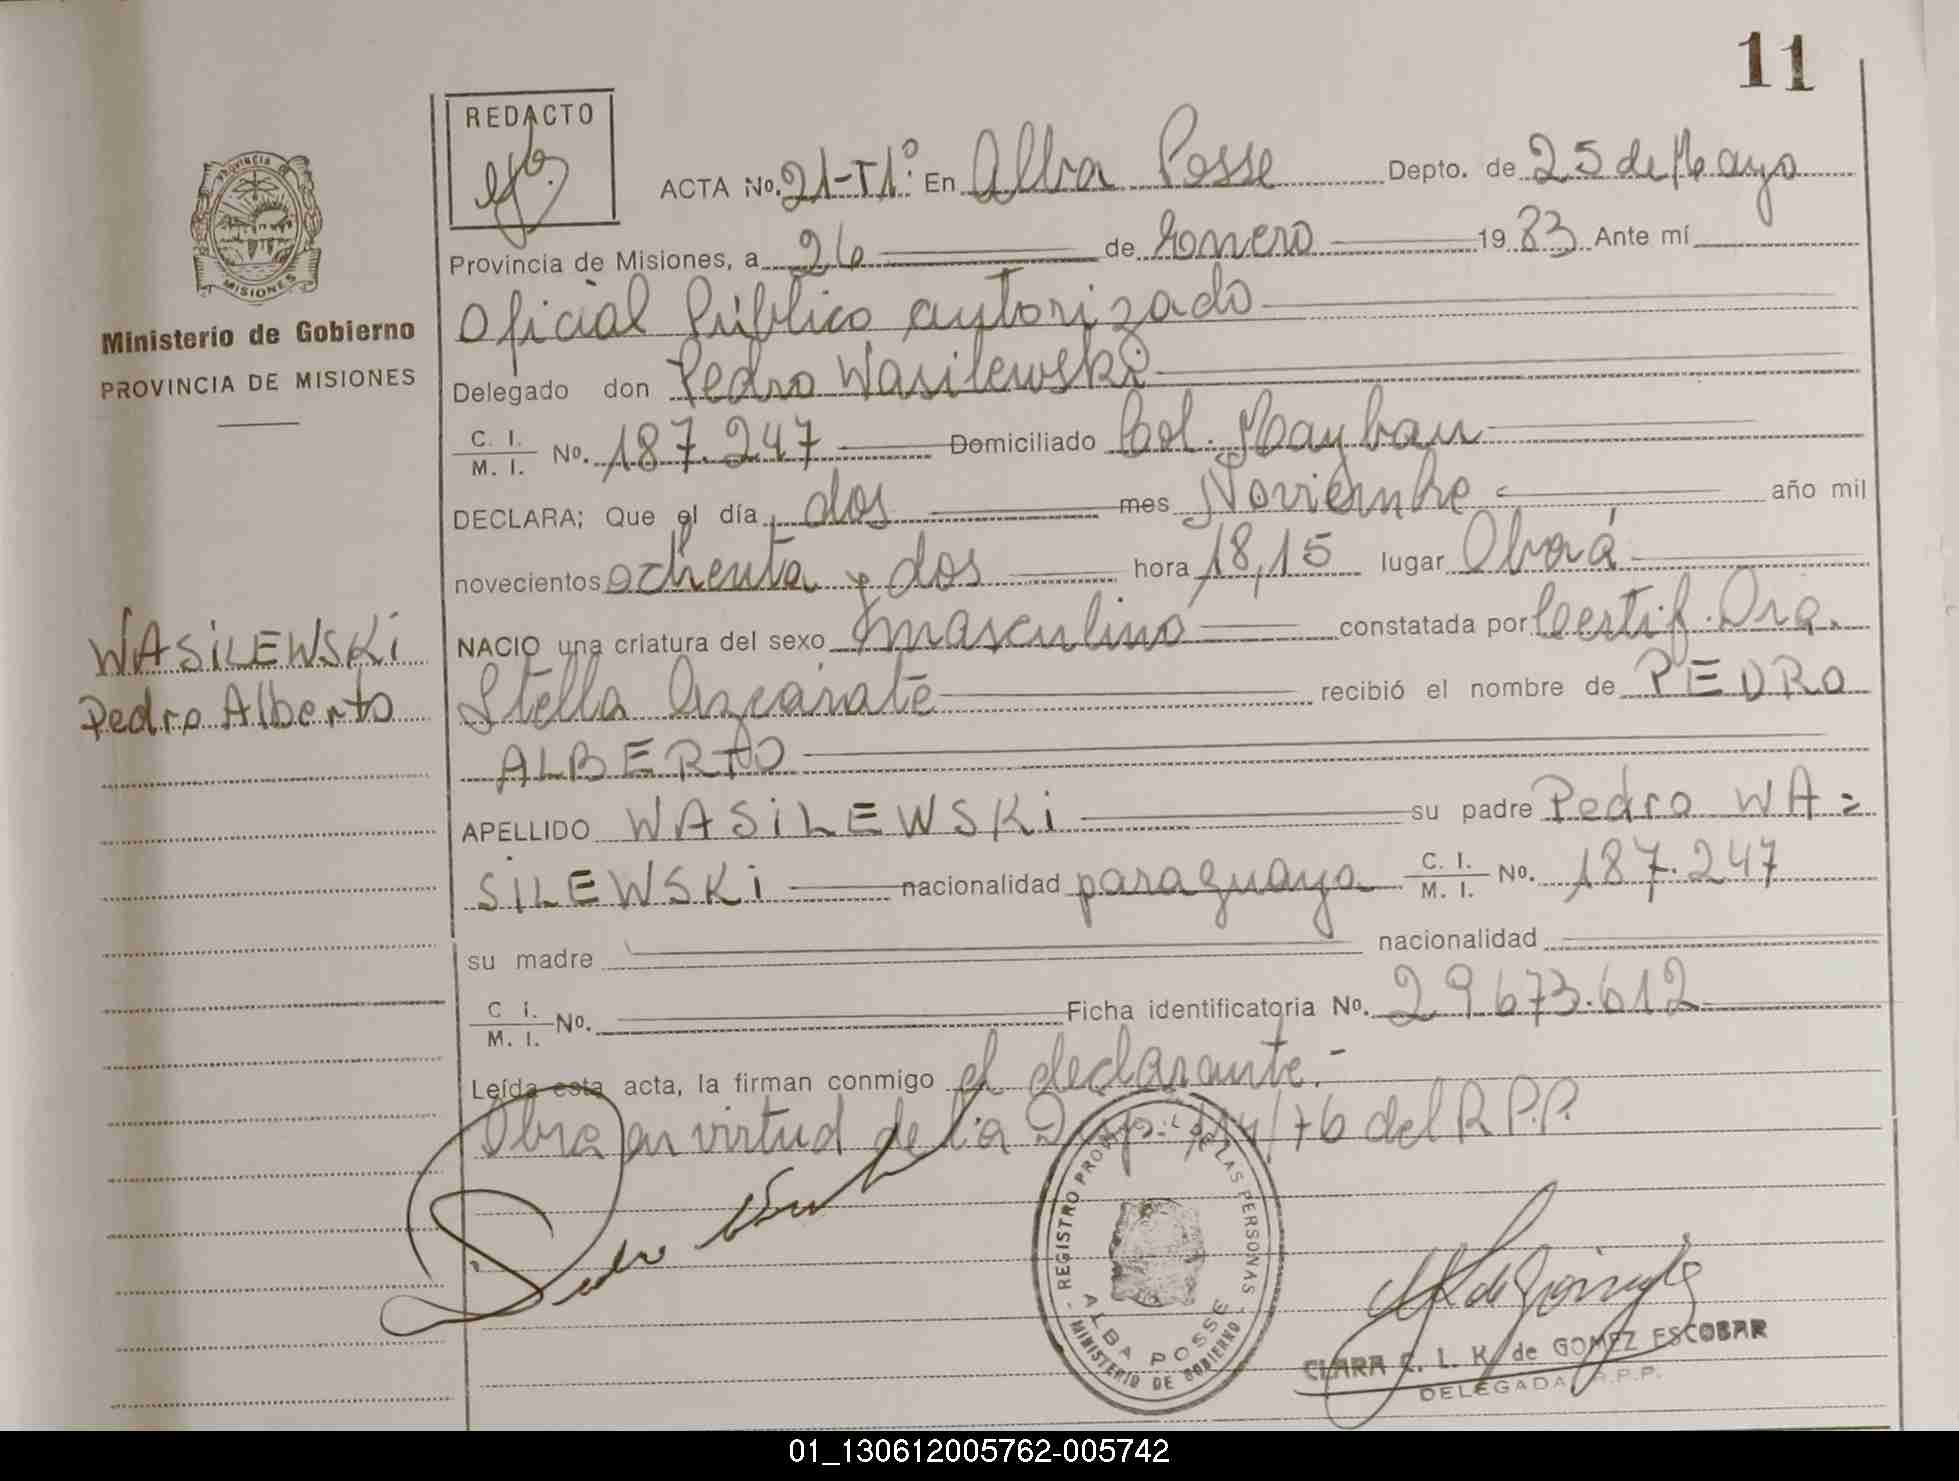 11
REDACTO
ACTA No. 21-T1° En Alba Posse Depto. de 25 de Mayo
Provincia de Misiones, a 26 de Enero 1983 Ante mí
Oficial Público autorizado
Delegado don Pedro Wasilewski
C. I.
M. I. No. 187.247 Domiciliado Col. Mayban
DECLARA; Que el día dos mes Noviembre año mil
novecientos ochenta y dos hora 18,15 lugar Oberá
NACIO una criatura del sexo masculino constatada por Certif. Dra.
Stella Azcárate recibió el nombre de PEDRO
ALBERTO
APELLIDO WASiLEWSKi su padre Pedro WA=
SiLEWSKi nacionalidad paraguaya C. I.
M. I. No. 187.247
su madre nacionalidad
C I.
M. I. No. Ficha identificatoria No. 29.673.612
Leída esta acta, la firman conmigo el declarante.-
Obra en virtud de la Disp. /76 del R.P.P.
PROVINCIA
MISIONES
Ministerio de Gobierno
PROVINCIA DE MISIONES
WASiLEWSKi
Pedro Alberto
Pedro
- REGISTRO PROVINCIAL DE LAS PERSONAS -
ALBA POSSE
MINISTERIO DE GOBIERNO
CLARA C. L. K. de GOMEZ ESCOBAR
DELEGADA R.P.P.
01_130612005762-005742